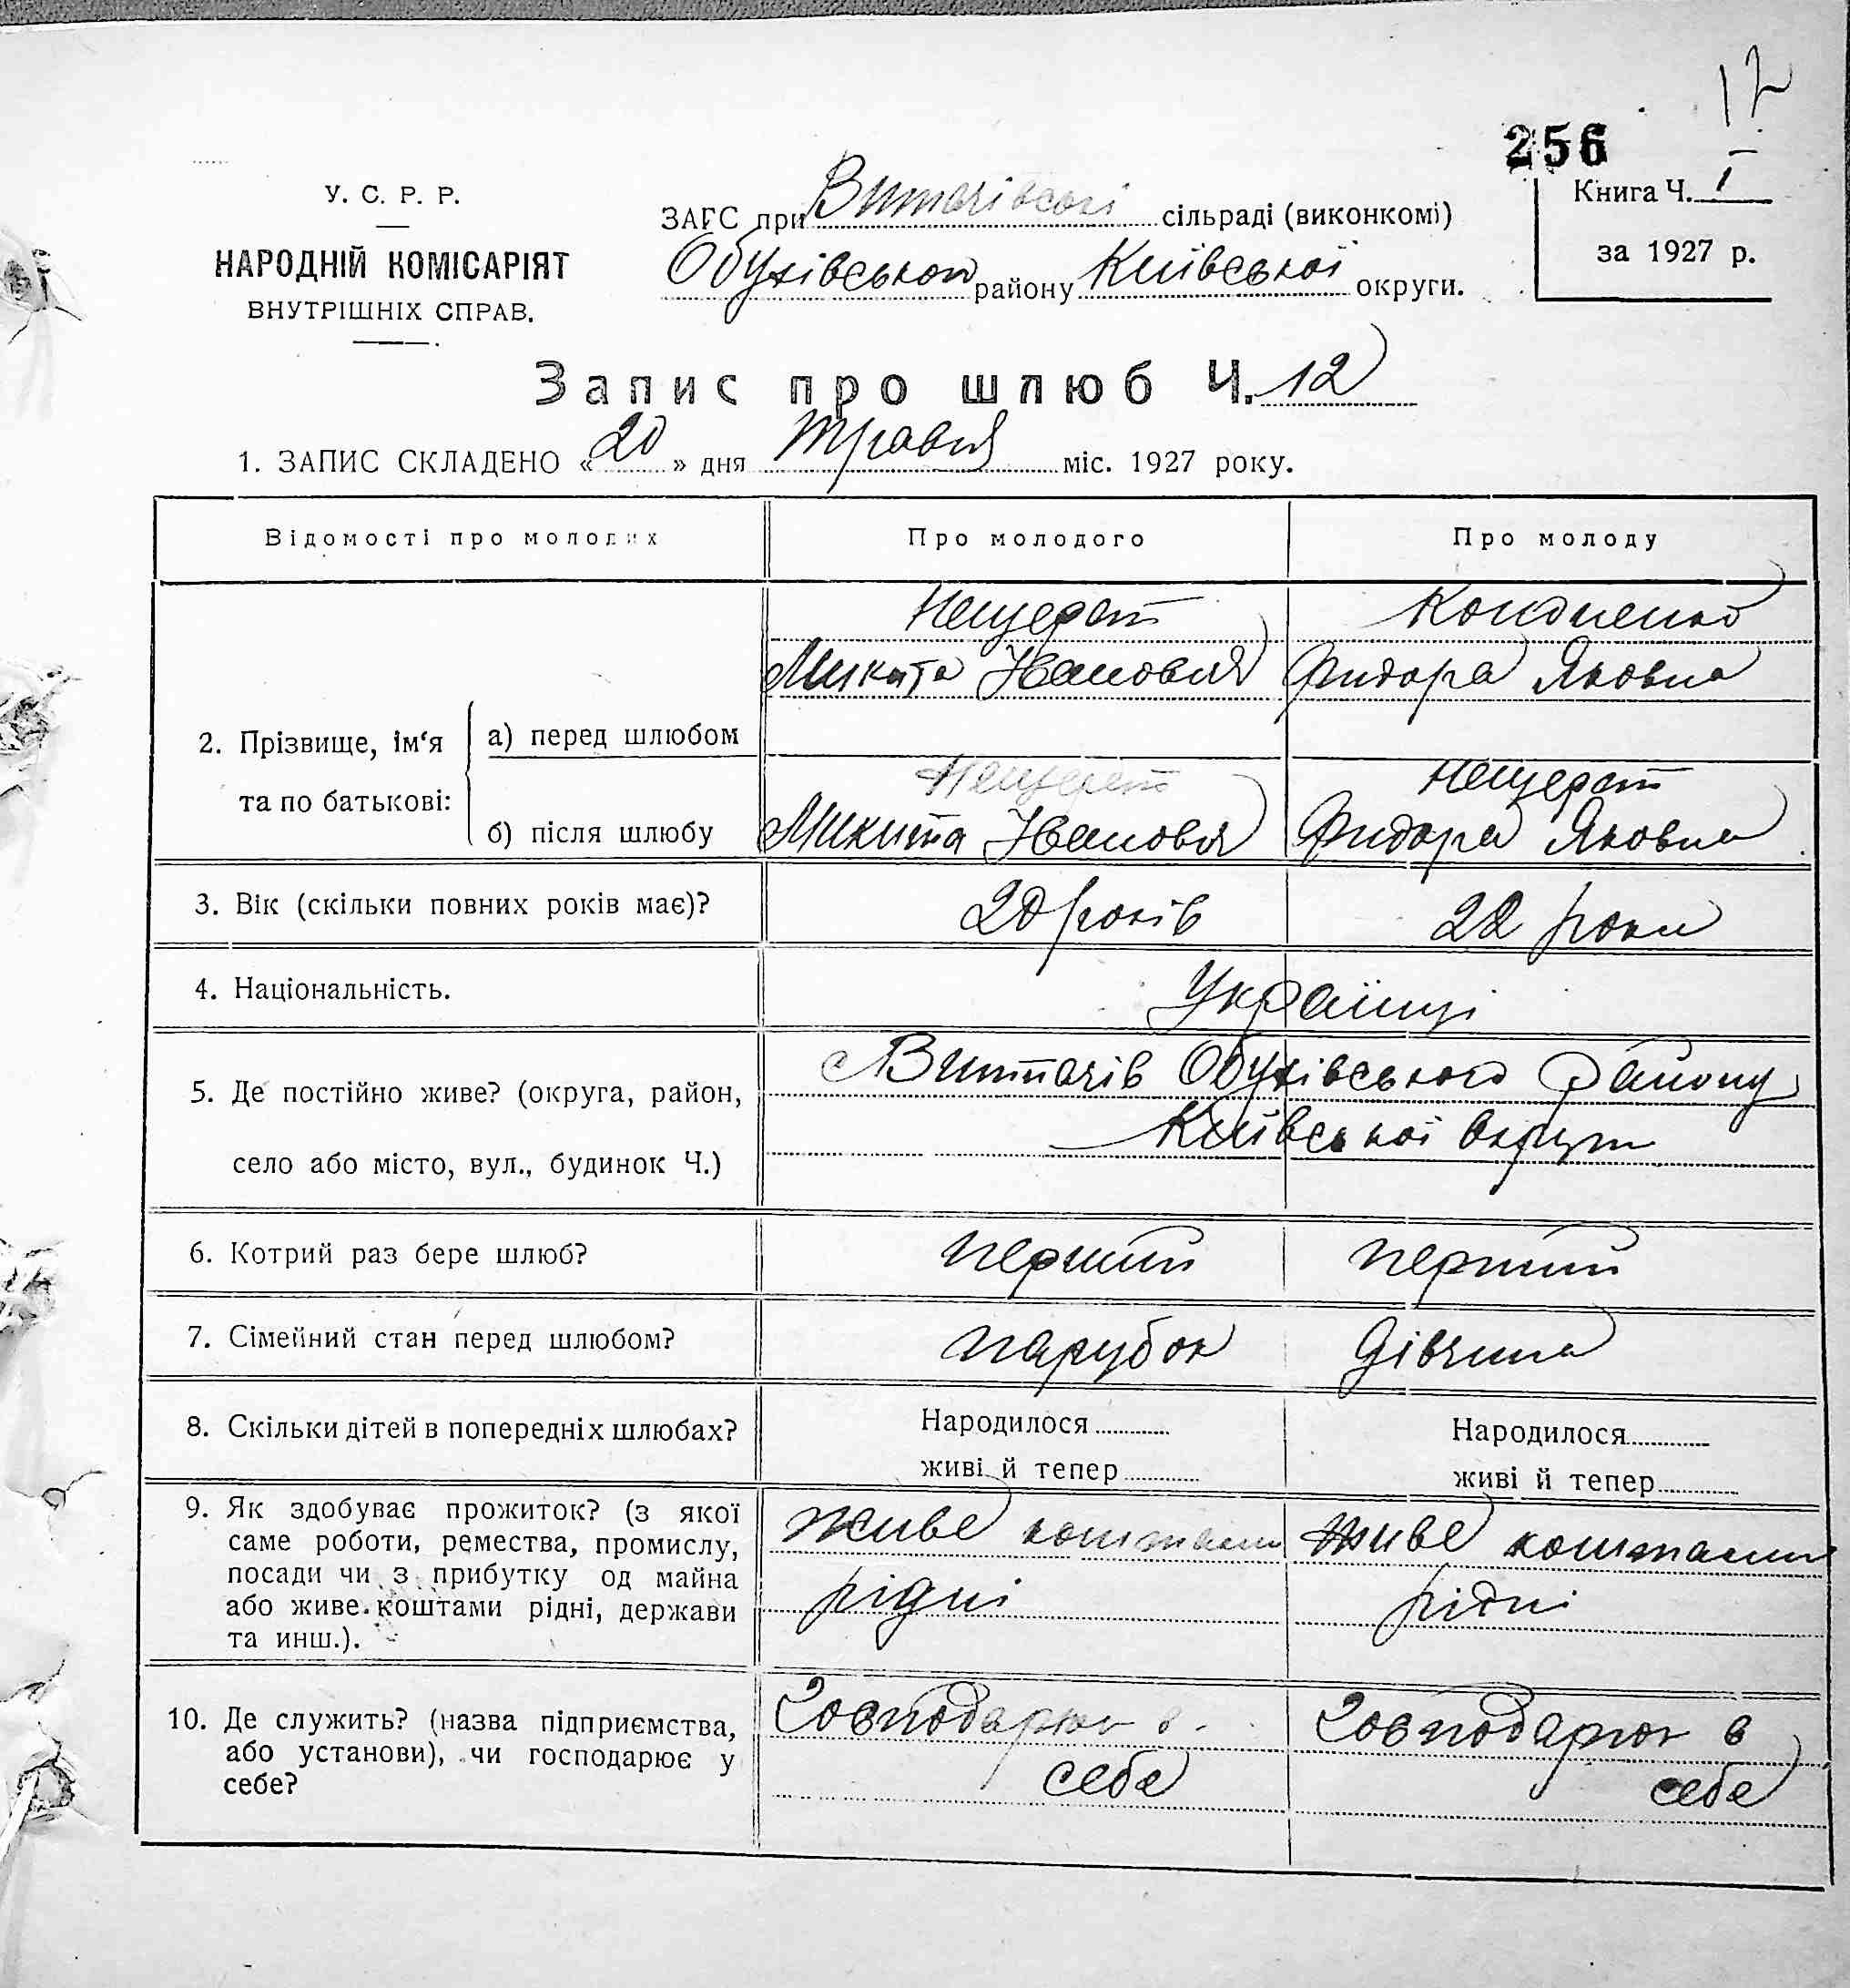 17
256
У. С. Р. Р.
НАРОДНІЙ КОМІСАРІЯТ
ВНУТРІШНІХ СПРАВ.
ЗАГС при Витачівській сільраді (виконкомі)
Обухівського району Київської округи.
Книга Ч. I
за 1927 р.
Запис про шлюб Ч. 12
1. ЗАПИС СКЛАДЕНО «20» дня травня міс. 1927 року.
Відомості про молодих
Про молодого
Про молоду
2. Прізвище, ім'я та по батькові:
а) перед шлюбом
Нещерет
Микита Іванович
Кондиенко
Фидора Яковна
б) після шлюбу
Нещерет
Микита Іванович
Нещерет
Фидора Яковна
3. Вік (скільки повних років має)?
20 років
22 роки
4. Національність.
Українці
5. Де постійно живе? (округа, район,
село або місто, вул., будинок Ч.)
с Виттачів Обухівського району
Київської округи
6. Котрий раз бере шлюб?
перший
перший
7. Сімейний стан перед шлюбом?
парубок
дівчина
8. Скільки дітей в попередніх шлюбах?
Народилося
живі й тепер
Народилося
живі й тепер
9. Як здобуває прожиток? (з якої
саме роботи, ремества, промислу,
посади чи з прибутку од майна
або живе коштами рідні, держави
та инш.).
живе коштами
рідні
живе коштами
рідні
10. Де служить? (назва підприємства,
або установи), чи господарює у
себе?
Господарює в
себе
Господарює в
себе